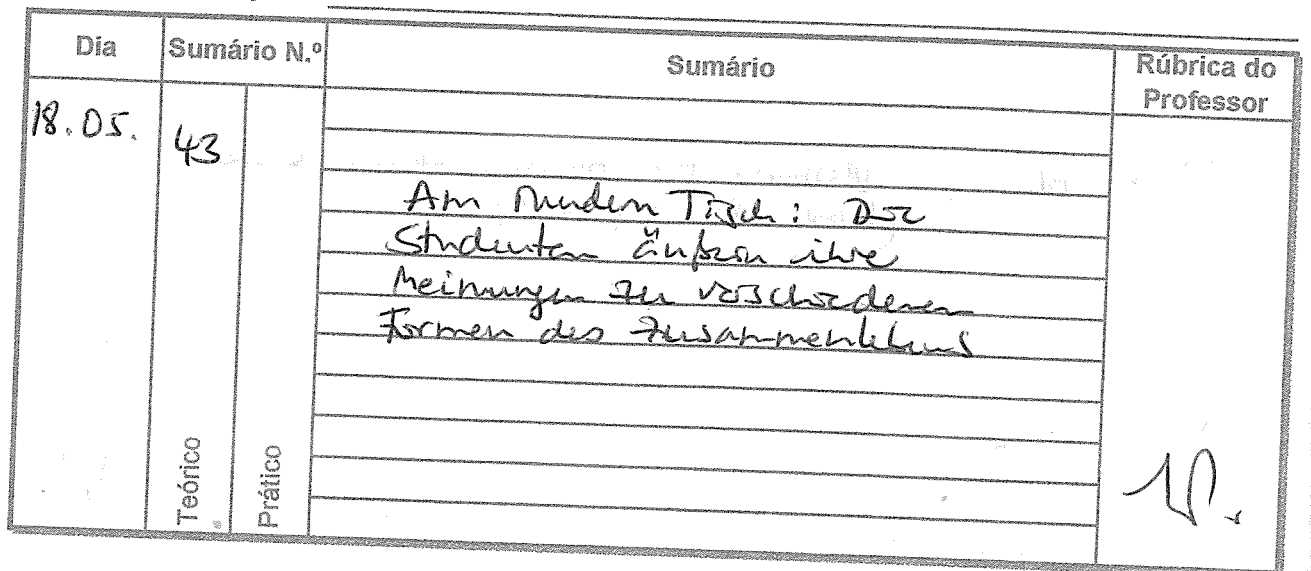 Dia Sumário N.º Sumário Rúbrica do Professor
18.05. 43
Am Runden Tisch: Die
Studenten äußern ihre
Meinungen zu verschiedenen
Formen des Zusammenlebens
Teórico Prático